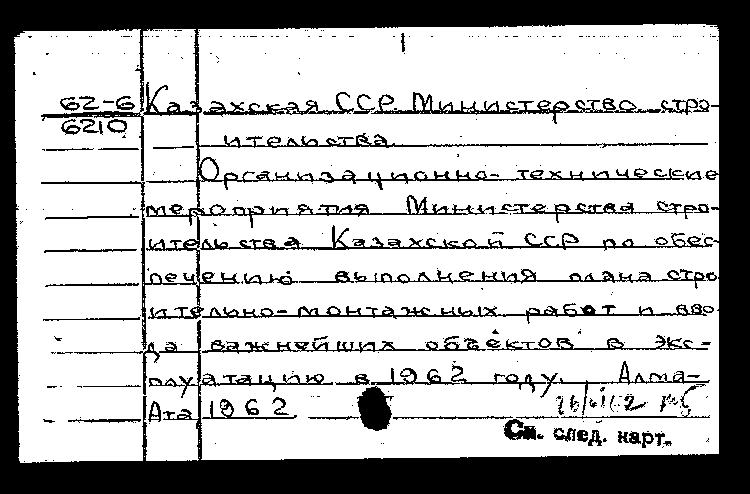 62-6 Казахская ССР. Министерство стро-
6210
ительства.
Организационно-технические
мероприятия Министерства стро-
ительства Казахской ССР по обес-
печению выполнения плана стро
ительно-монтажных работ и вво
да важнейших объектов в экс-
плуатацию в 1962 году. Алма-
Ата 1962
См. след. карт.